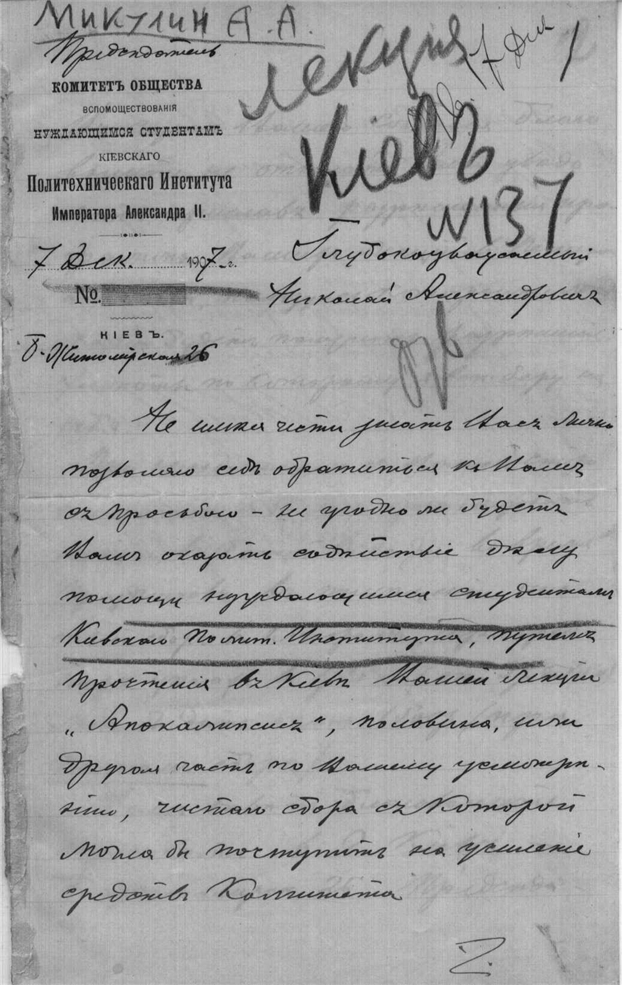 Микулин А. А.
Предсѣдатель
КОМИТЕТЪ ОБЩЕСТВА
ВСПОМОЩЕСТВОВАНІЯ
НУЖДАЮЩИМСЯ СТУДЕНТАМЪ
КІЕВСКАГО
Политехническаго Института
Императора Александра II.
лекція
17 Дек
1
Кіевъ
N 137
7 Дек. 1907 г.
№
КІЕВЪ.
Б. Житомірская 26
Глубокоуважаемый
Николай Александровичъ
Не имѣя чести знать Васъ лично
позволяю себѣ обратиться къ Вамъ
съ просьбою – не угодно ли будетъ
Вамъ оказать содѣйствіе дѣлу
помощи нуждающимся студентамъ
Кіевскаго Полит. Института, путемъ
прочтенія въ Кіевѣ Вашей лекціи
„Апокалипсисъ“, половина, или
другая часть по Вашему усмотрѣ-
нію, чистаго сбора съ которой
могла бы поступить на усиленіе
средствъ Комитета